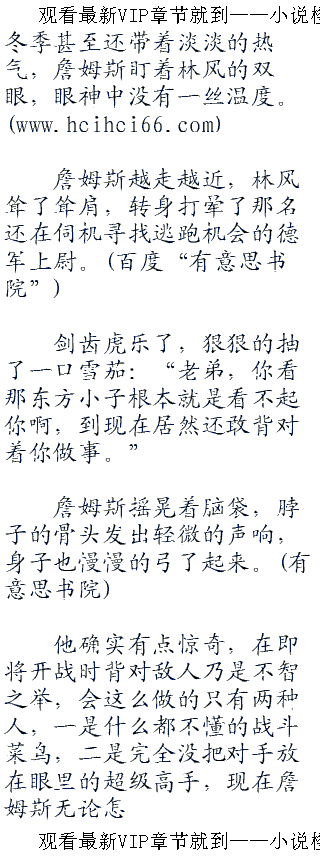 观看最新VIP章节就到——小说
冬季甚至还带着淡淡的热
气，詹姆斯盯着林风的双
眼，眼神中没有一丝温度。
(www.hcihci66.com)
詹姆斯越走越近，林风
耸了耸肩，转身打晕了那名
还在伺机寻找逃跑机会的德
军上尉。(百度“有意思书
院”)
剑齿虎乐了，狠狠的抽
了一口雪茄：“老弟，你看
那东方小子根本就是看不起
你啊，到现在居然还敢背对
着你做事。”
詹姆斯摇晃着脑袋，脖
子的骨头发出轻微的声响，
身子也慢慢的弓了起来。(有
意思书院)
他确实有点惊奇，在即
将开战时背对敌人乃是不智
之举，会这么做的只有两种
人，一是什么都不懂的战斗
菜鸟，二是完全没把对手放
在眼里的超级高手，现在詹
姆斯无论怎
观看最新VIP章节就到——小说